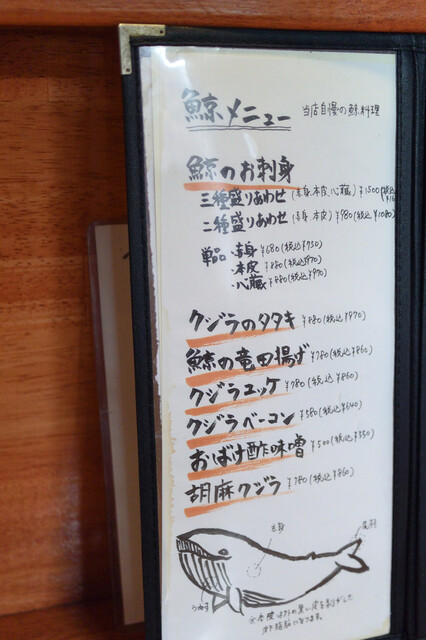 鯨メニュー 当店自慢の鯨料理
鯨のお刺身
三種盛りあわせ (赤身、本皮、心臓) ¥1500 (税込
二種盛りあわせ (赤身、本皮) ¥980 (税込¥1080)
単品・赤身 ¥680 (税込¥750)
・本皮 ¥880 (税込¥970)
・心臓 ¥880 (税込¥970)
クジラのタタキ ¥880 (税込¥970)
鯨の竜田揚げ ¥780 (税込¥860)
クジラユッケ ¥780 (税込¥860)
クジラベーコン ¥580 (税込¥640)
おばけ酢味噌 ¥500 (税込¥550)
胡麻クジラ ¥780 (税込¥860)
赤身
尾羽